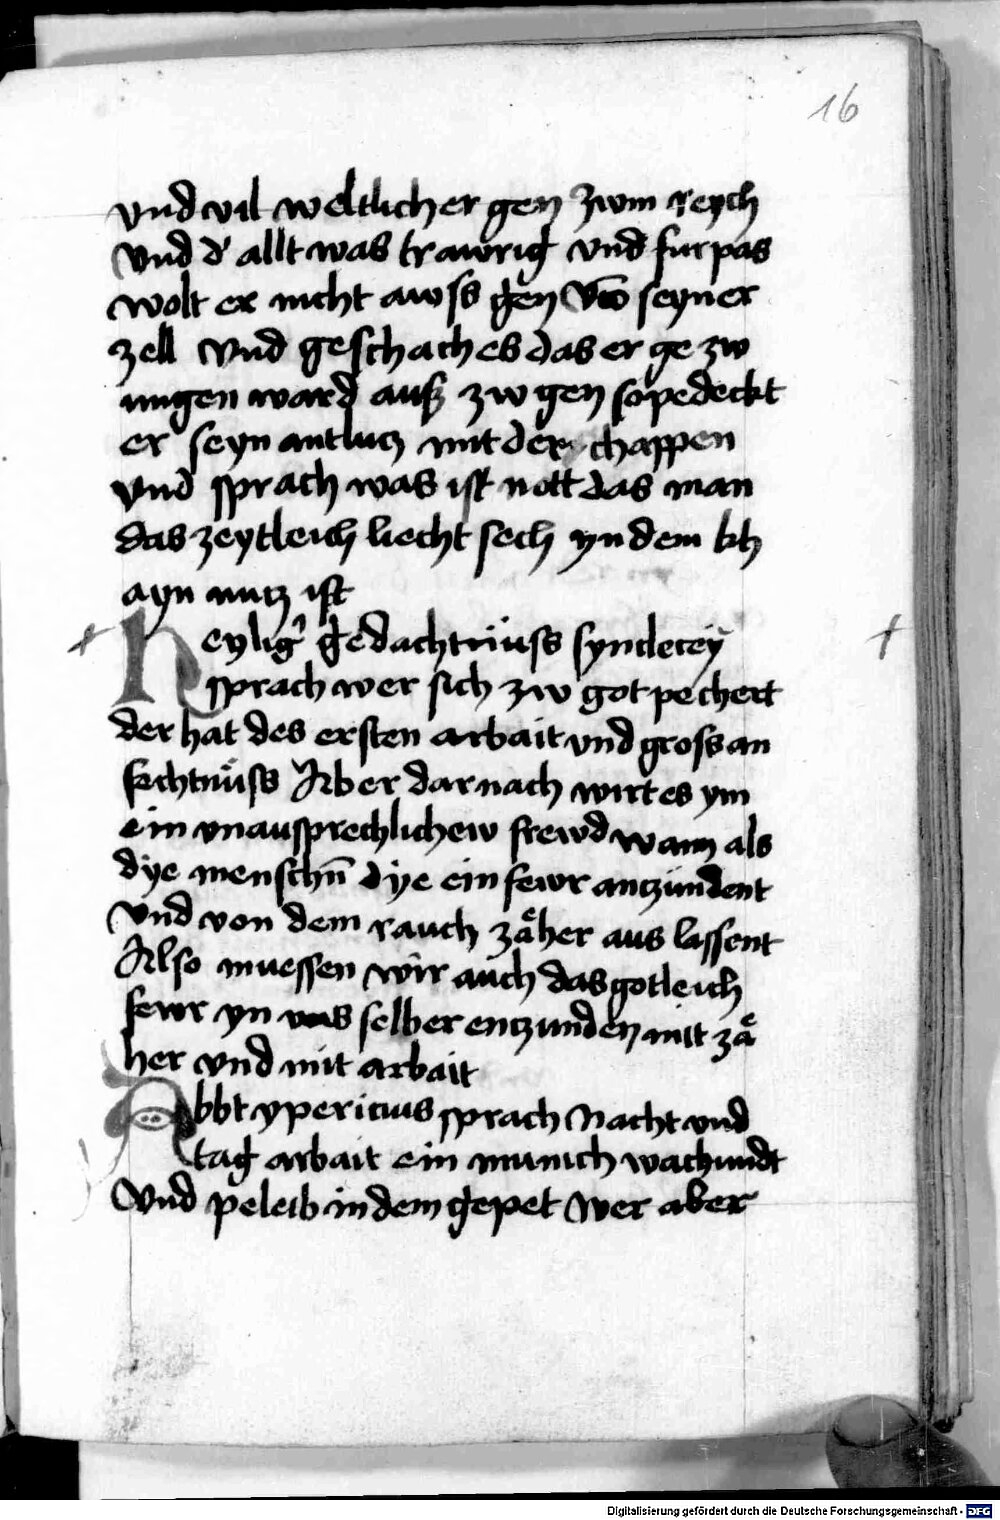 16
vnd vil weltlicher gen zwm reych
Vnd d' allt was trawrig vnd furpas
wolt er nicht awss gen Võ seyner
zell Vnd geschach es das er ge zw
ungen ward auß zw gen so pedeckt
er seyn antlucz mit der chappen
vnd sprach was ist nott das man
das zeytleich liecht sech yn dem kh
ayn nucz ist
Heylig' gedachtnüss syncletey
sprach wer sich zw got pechert
der hat des ersten arbait vnd gross an
fechtnüss Aber darnach wirt es ym
ein vnaussprechlichew frewd wann als
dye menschn̄ dye ein fewr anczündent
Vnd von dem rauch zaͤher aus lassent
Also muessen wir auch das gotleich
fewr yn vns selber enczunden mit zaͤ
her vnd mit arbait
Abbt ypericius sprach Nacht vnd
tag arbait ein munich wachundt
Vnd peleib in dem gepet Wer aber
Digitalisierung gefördert durch die Deutsche Forschungsgemeinschaft - DFG